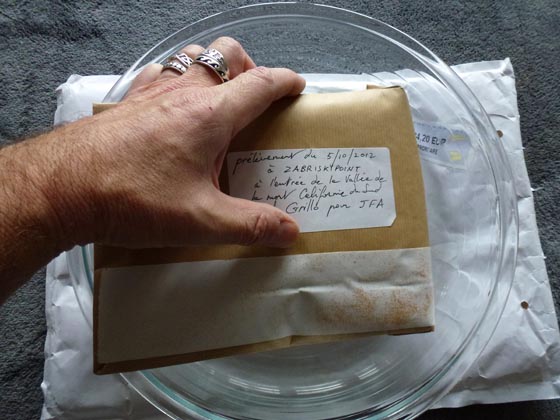 prélèvement du 5/10/2012
à ZABRISKYPOINT
à l'entrée de la Vallée de
la mort Californie du Sud
Grillo pour JFA
4.20 EUR